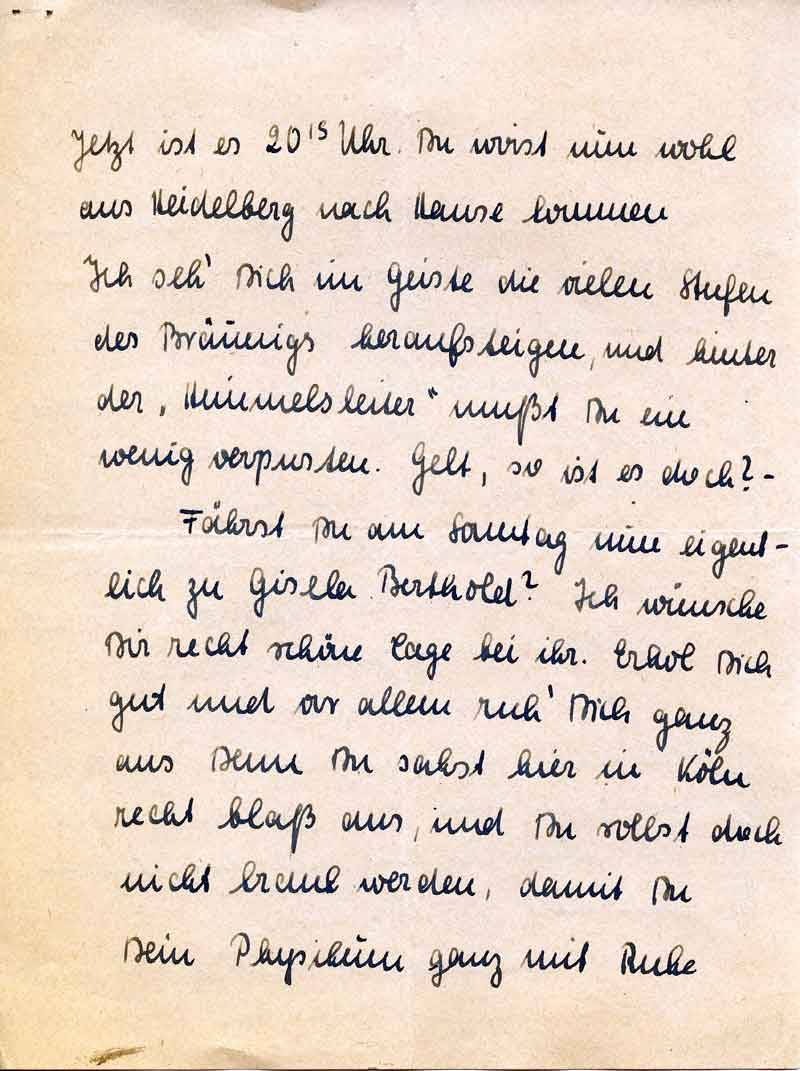 Jetzt ist es 20¹⁵ Uhr. Du wirst nun wohl
aus Heidelberg nach Hause kommen
Ich seh' Dich im Geiste die vielen Stufen
des Bräunigs heraufsteigen, und hinter
der „Himmelsleiter" mußt Du ein
wenig verpusten. Gelt, so ist es doch? -
Fährst Du am Sonntag nun eigent-
lich zu Gisela Berthold? Ich wünsche
Dir recht schöne Tage bei ihr. Erhol Dich
gut und vor allem ruh' Dich ganz
aus Denn Du sahst hier in Köln
recht blaß aus, und Du sollst doch
nicht krank werden, damit Du
Dein Physikum ganz mit Ruhe